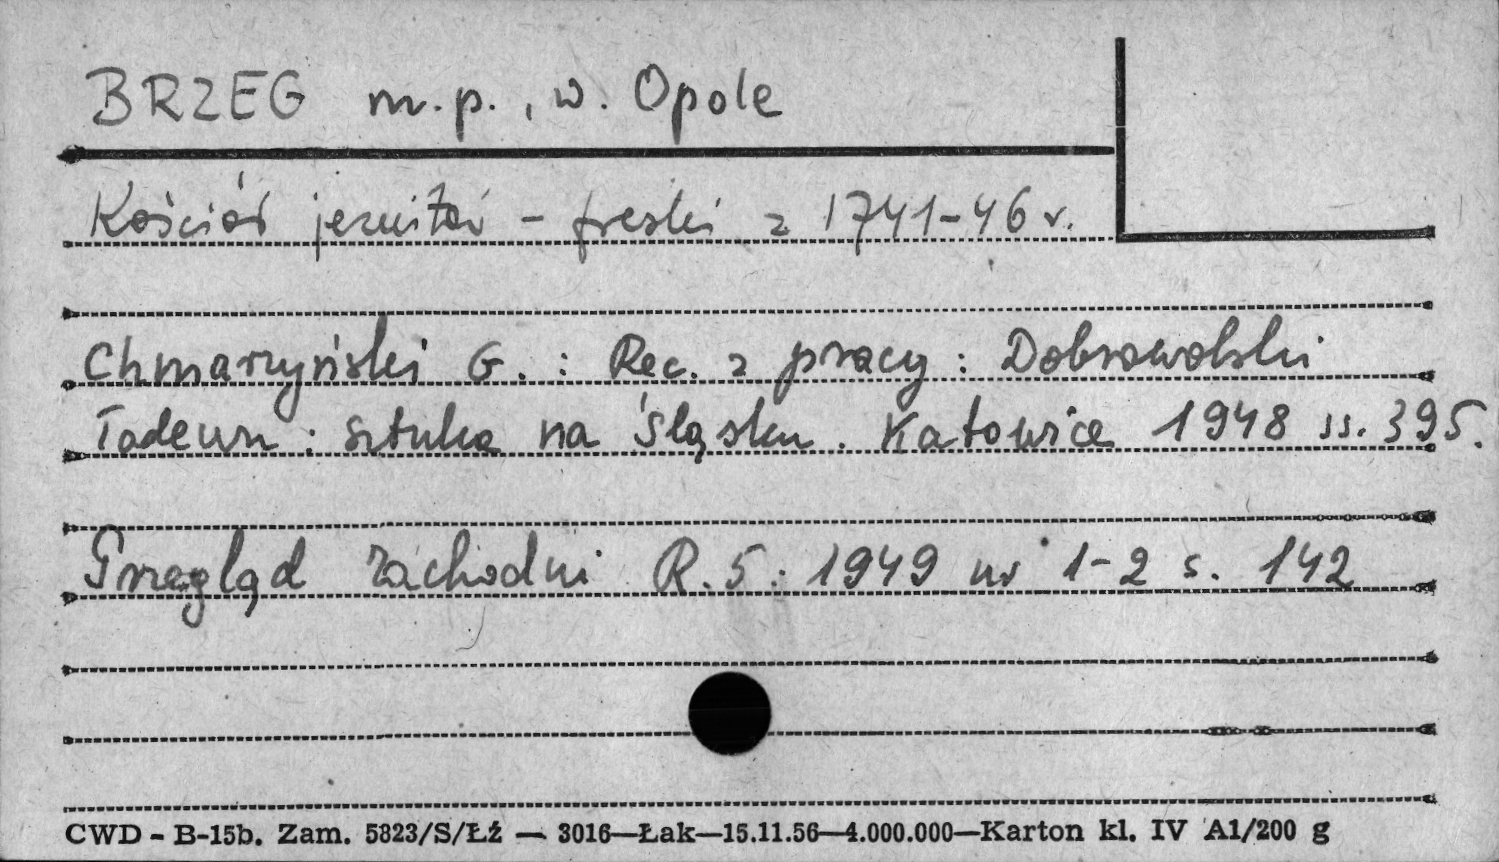 BRZEG m.p., w. Opole
Kościół jezuitów - freski z 1741-46 r.
Chmarzyński G. : Rec. z pracy : Dobrowolski
Tadeusz : Sztuka na Śląsku. Katowice 1948 ss. 395.
Przegląd Zachodni R. 5 : 1949 nr 1-2 s. 142
CWD - B-15b. Zam. 5823/S/Łź — 3016—Łak—15.11.56—4.000.000—Karton kl. IV A1/200 g